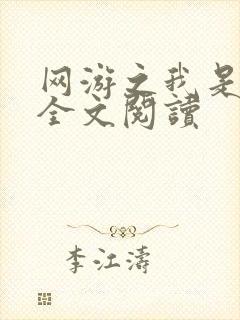 网游之我是
全文阅读
李江涛